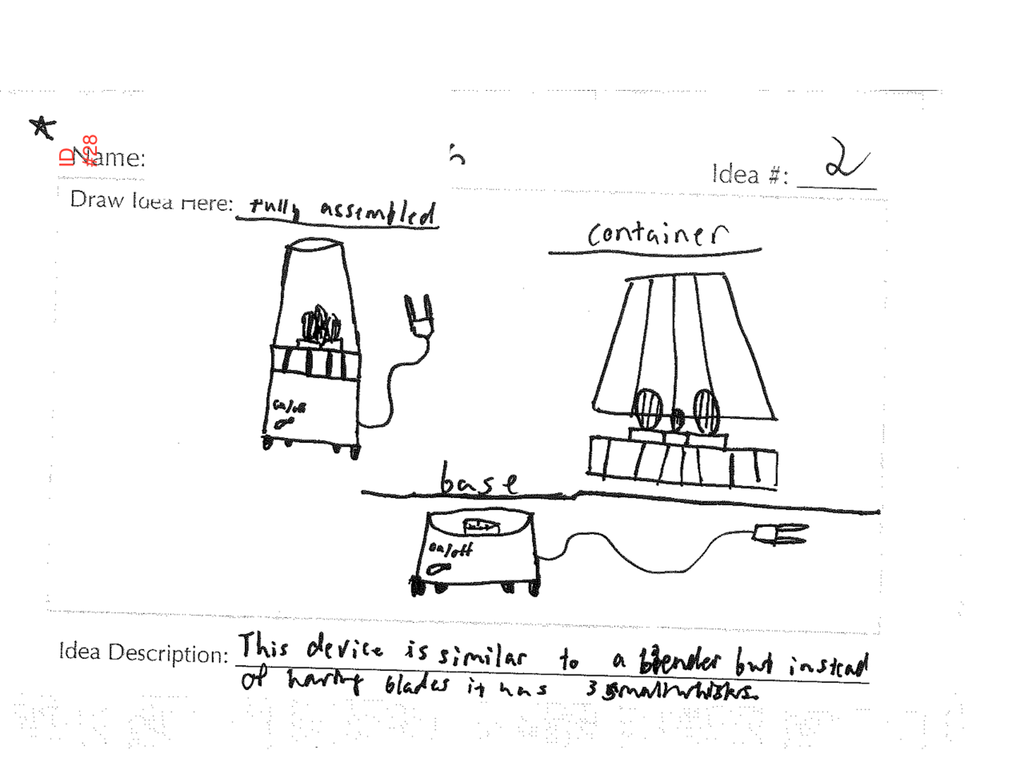 ID
#28
Name:
Idea #: 2
Draw Idea Here: fully assembled
container
on/off
base
on/off
Idea Description: This device is similar to a blender but instead
of having blades it has 3 small whisks.